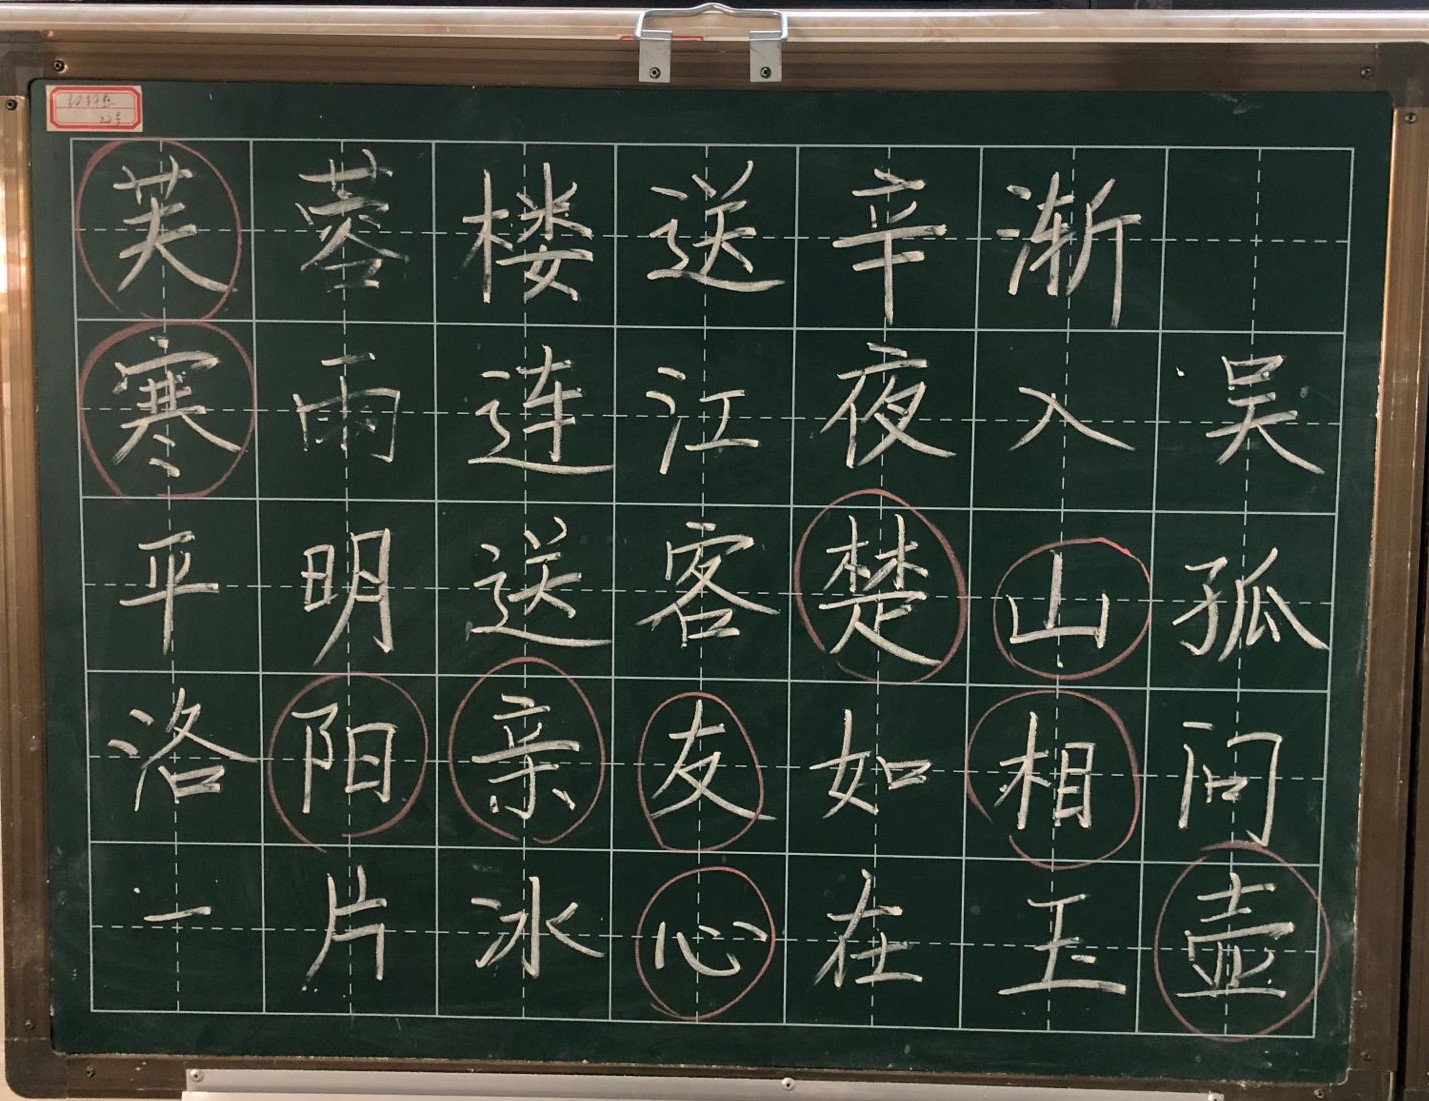 芙蓉楼送辛渐
寒雨连江夜入吴
平明送客楚山孤
洛阳亲友如相问
一片冰心在玉壶